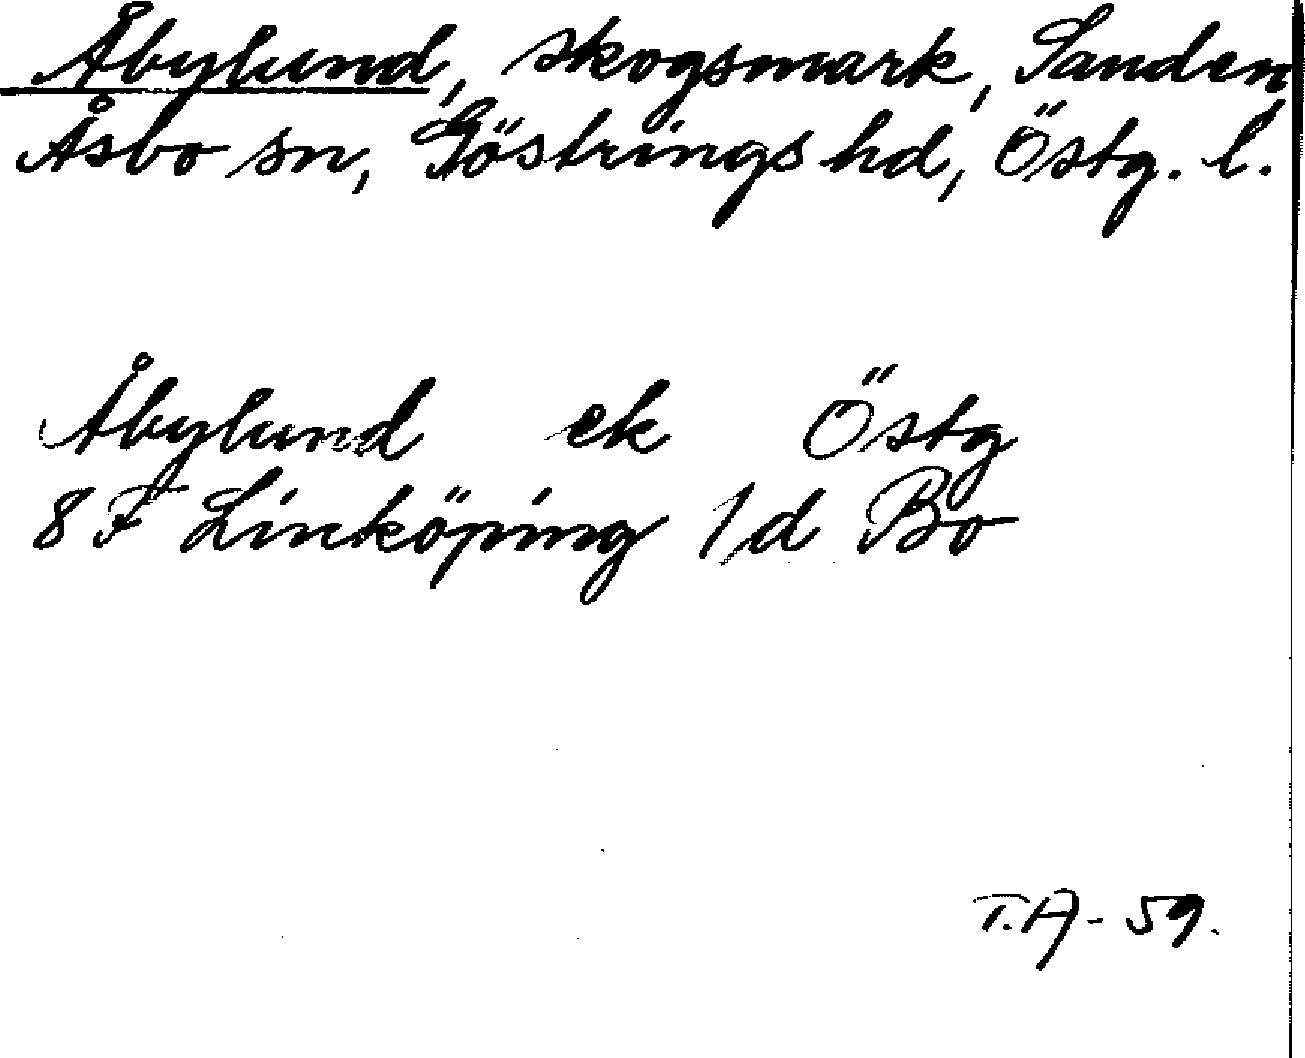 Åbylund, skogsmark, Sanden
Åsbo sn, Göstrings hd, Östg. l.
Åbylund ek Östg
8 F Linköping 1 d Bo
T.A-59.